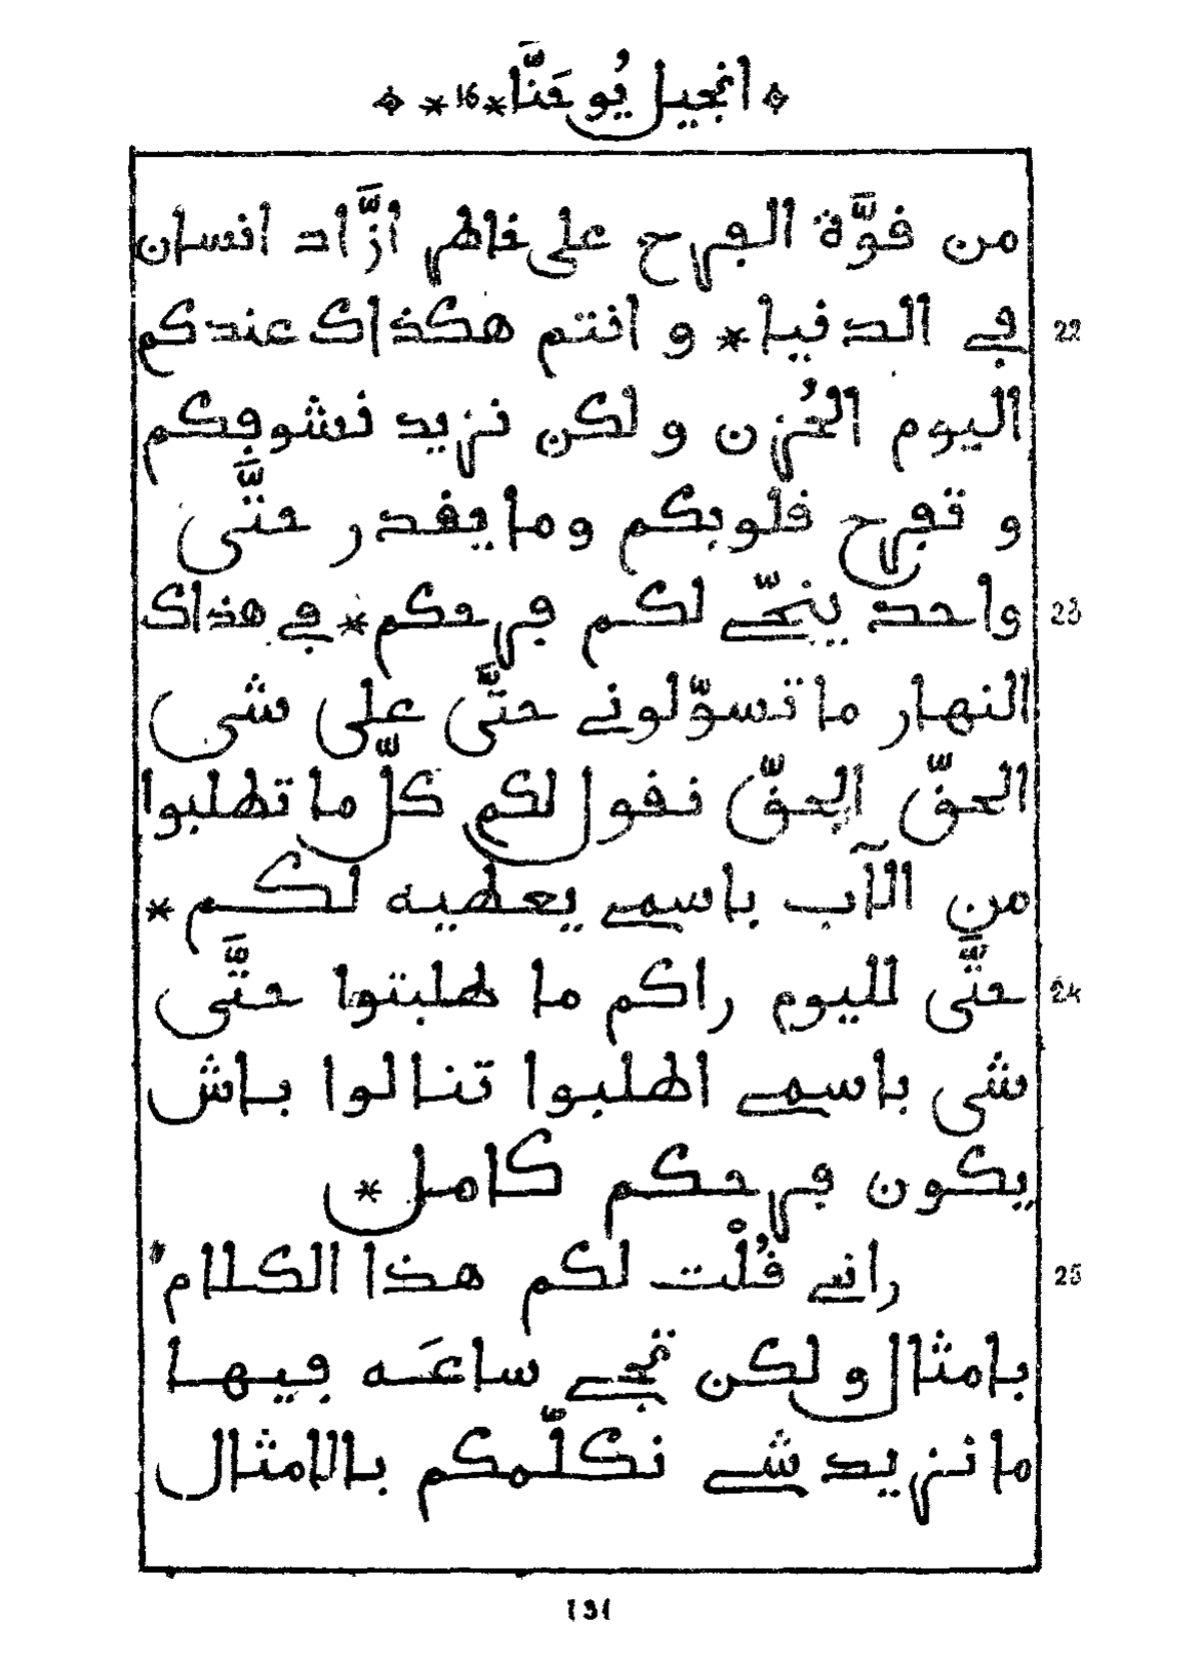 انجيل يُوحَنَّا * 16 *
من قوَّة الفرح على خاطر ازَّاد انسان
22 في الدنيا * و انتم هكذاك عندكم
اليوم الحُزن و لكن نزيد نشوفكم
و تفرح قلوبكم وما يقدر حتَّى
23 واحد ينحّي لكم فرحكم * في هذاك
النهار ما تسوّلوني حتَّى على شي
الحقّ الحقّ نقول لكم كلّ ما تطلبوا
من الآب باسمي يعطيه لكم *
24 حتَّى لليوم راكم ما طلبتوا حتَّى
شي باسمي اطلبوا تنالوا باش
يكون فرحكم كامل *
25 راني قُلْت لكم هذا الكلام
بامثال و لكن تجي ساعَه فيها
ما نزيد شي نكلّمكم بالامثال
131